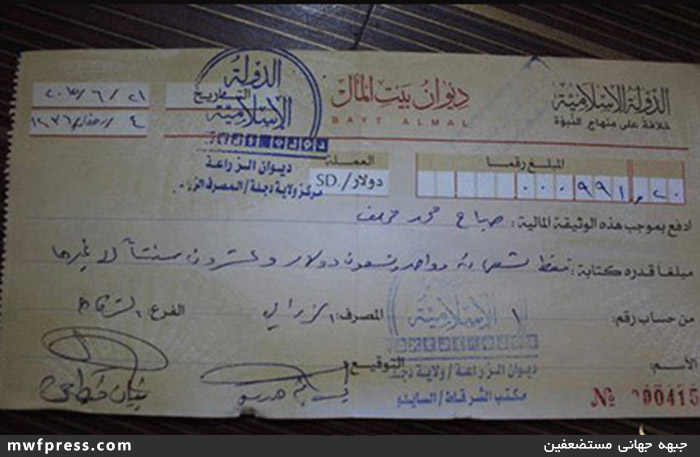 الدولة الإسلامية
خلافة على منهاج النبوة
ديوان بيت المال
BAYT ALMAL
الدولة
الإسلامية
ديوان الزراعة
مركز ولاية دجلة / المصرف الزراعي
التاريخ
٢٠١٥/٦/٢١
٤/رمضان/١٤٣٦
المبلغ رقما
٠٠٠٩٩١,٢٠
العملة
دولار/SD.
ادفع بموجب هذه الوثيقة المالية : صباح محمد خلف
مبلغا قدره كتابة : فقط تسعمائة وواحد وتسعون دولار وعشرون سنتاً لا غيرها
من حساب رقم : ١ المصرف : الزراعي الفرع : الشرقاط
الإسلامية
ديوان الزراعة / ولاية دجلة
مكتب الشرقاط / السايلو
الأسم : التوقيع :
№ 000415
mwfpress.com
جبهه جهانی مستضعفین